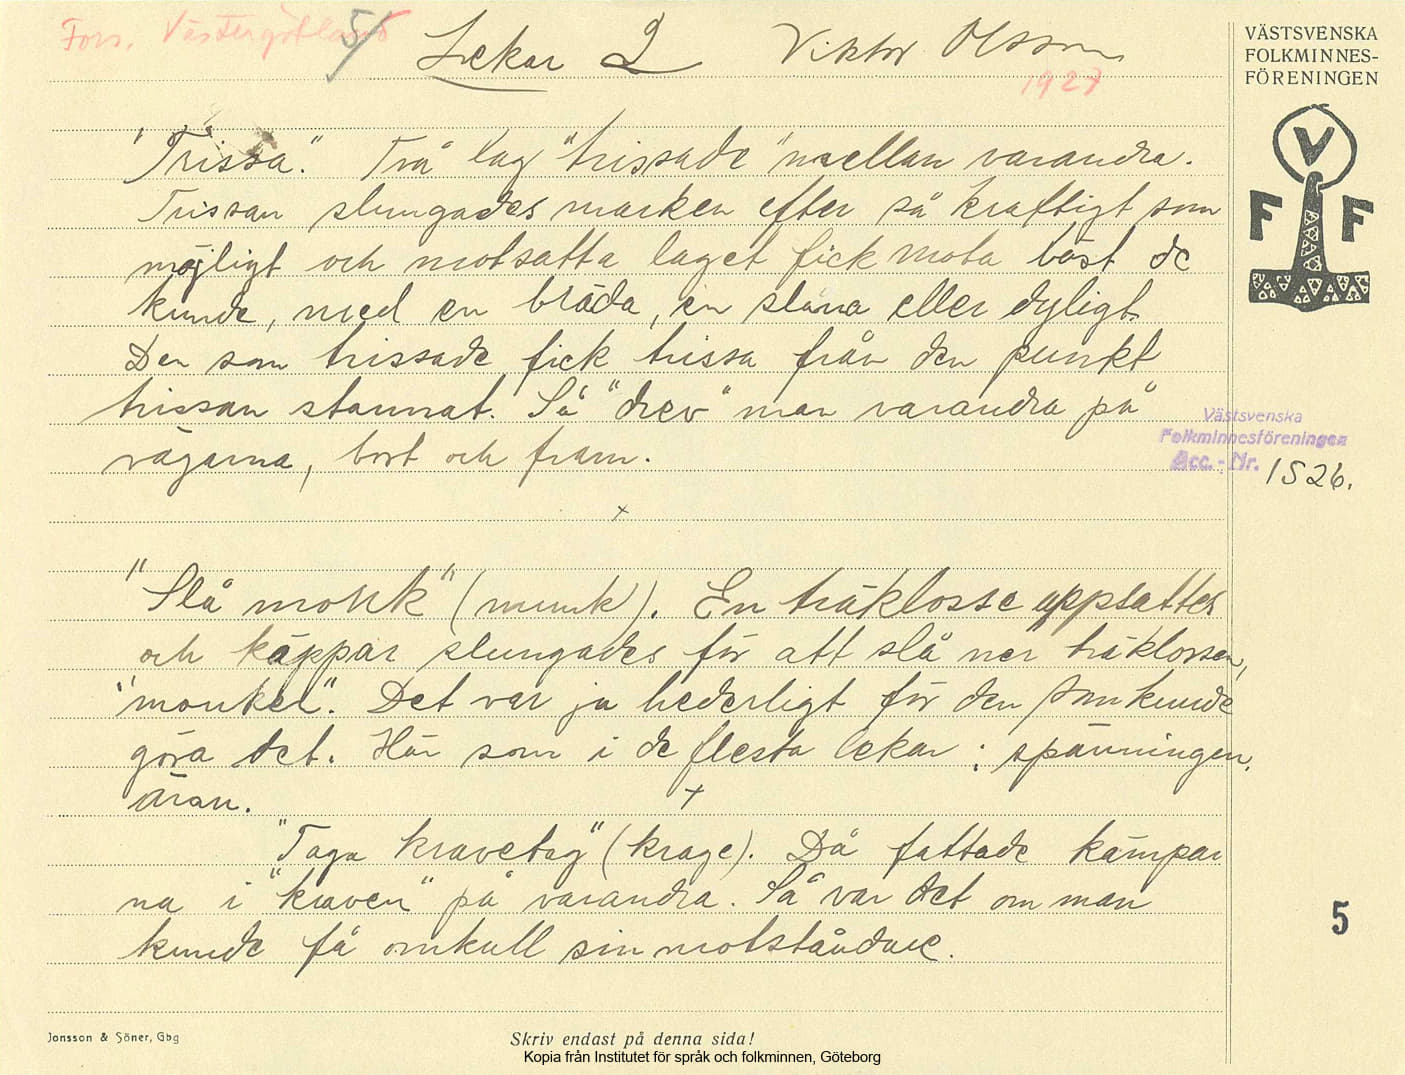 Fors. Västergötland
5/
Lekar 2 Viktor Olsson
1927
VÄSTSVENSKA
FOLKMINNES-
FÖRENINGEN
V
F F
"Trissa." Två lag "trissade" mellan varandra.
Trissan slungades marken efter så kraftigt som
möjligt och motsatta laget fick mota bäst de
kunde, med en bräda, en slana eller dyligt.
Den som trissade fick trissa från den punkt
trissan stannat. Så "drev" man varandra på
vägarna, bort och fram.
Västsvenska
Folkminnesföreningen
Acc.-Nr. 1526.
x
"Slå monk" (munk). En träklosse uppsattes
och käppar slungades för att slå ner träklossen,
"monken". Det var ju hederligt för den som kunde
göra det. Här som i de flesta lekar: spänningen,
äran.
x
"Taga kravetag" (krage). Då fattade kämpar
na i "kraven" på varandra. Så var det om man
kunde få omkull sin motståndare.
5
Jonsson & Söner, Gbg
Skriv endast på denna sida!
Kopia från Institutet för språk och folkminnen, Göteborg